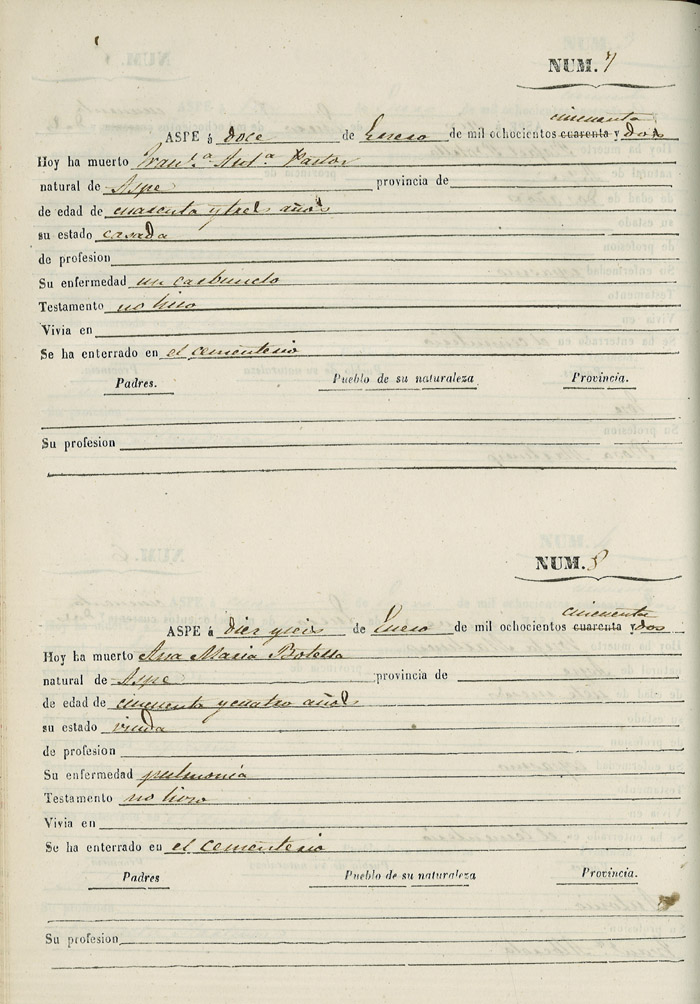 NUM. 7
cincuenta
ASPE á doce de Enero de mil ochocientos cuarenta y dos
Hoy ha muerto Fran.ca Ant.a Pastor
natural de Aspe provincia de
de edad de cuarenta y tres años
su estado casada
de profesion
Su enfermedad un carbunclo
Testamento no hizo
Vivia en
Se ha enterrado en el cementerio
Padres. Pueblo de su naturaleza Provincia.
Su profesion
NUM. 8
cincuenta
ASPE á diez y seis de Enero de mil ochocientos cuarenta y dos
Hoy ha muerto Ana Maria Botella
natural de Aspe provincia de
de edad de cincuenta y cuatro años
su estado viuda
de profesion
Su enfermedad pulmonia
Testamento no hizo
Vivia en
Se ha enterrado en el cementerio
Padres Pueblo de su naturaleza Provincia.
Su profesion